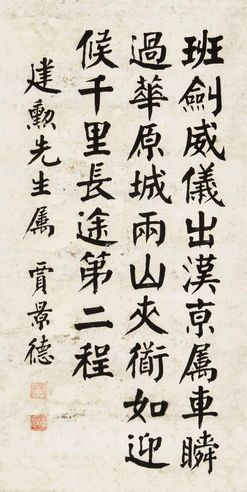 班劍威儀出漢京属車瞬
過華原城兩山夾衜如迎
候千里長途第二程
建勲先生属 賈景德